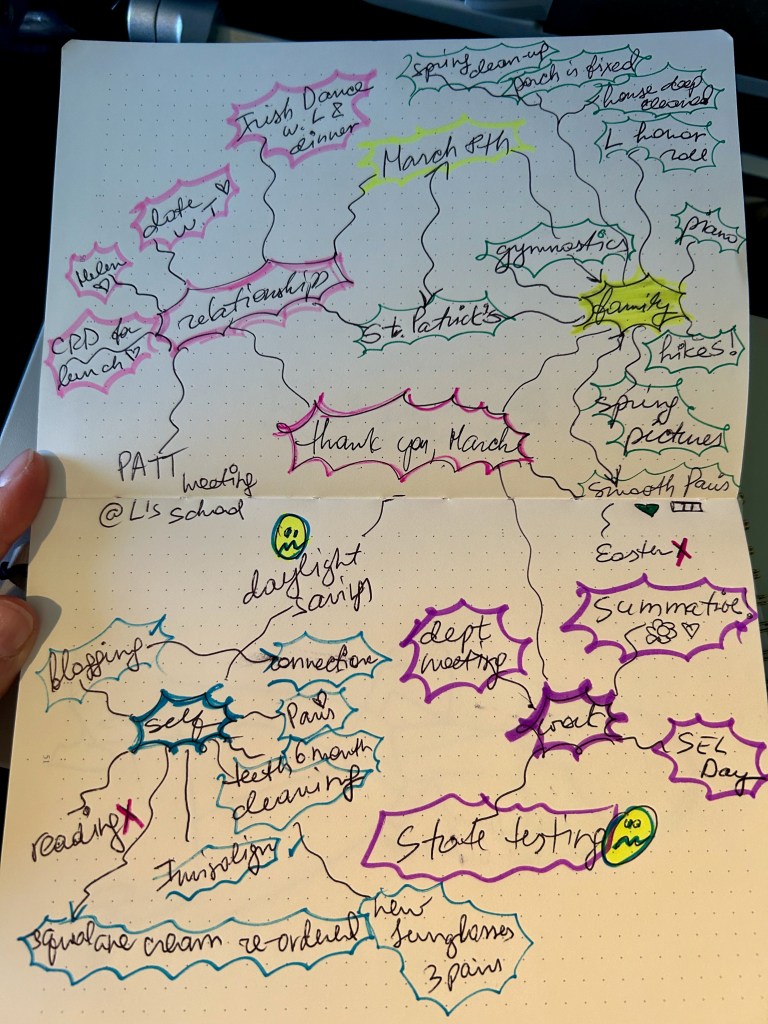 spring clean-up
porch is fixed
house deep
cleaned
L honor
roll
Irish Dance
w. L &
dinner
March 8th
date
w T
piano
gymnastics
Helen
relationships
St. Patrick's
family
CRD for
lunch
hikes!
spring
pictures
thank you, March
PATT
meeting
@ L's School
Smooth Paris
Easter X
daylight
savings
Summative
dept
meeting
blogging
connection
self
Paris
work
SEL
Day
teeth, 6 month
cleaning
reading X
State testing
Invisalign
squalane cream re-ordered
new
sunglasses
3 pairs